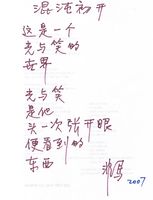 混沌初开
这是一个
光与笑的
世界
光与笑
是他
头一次张开眼
便看到的
东西
2007